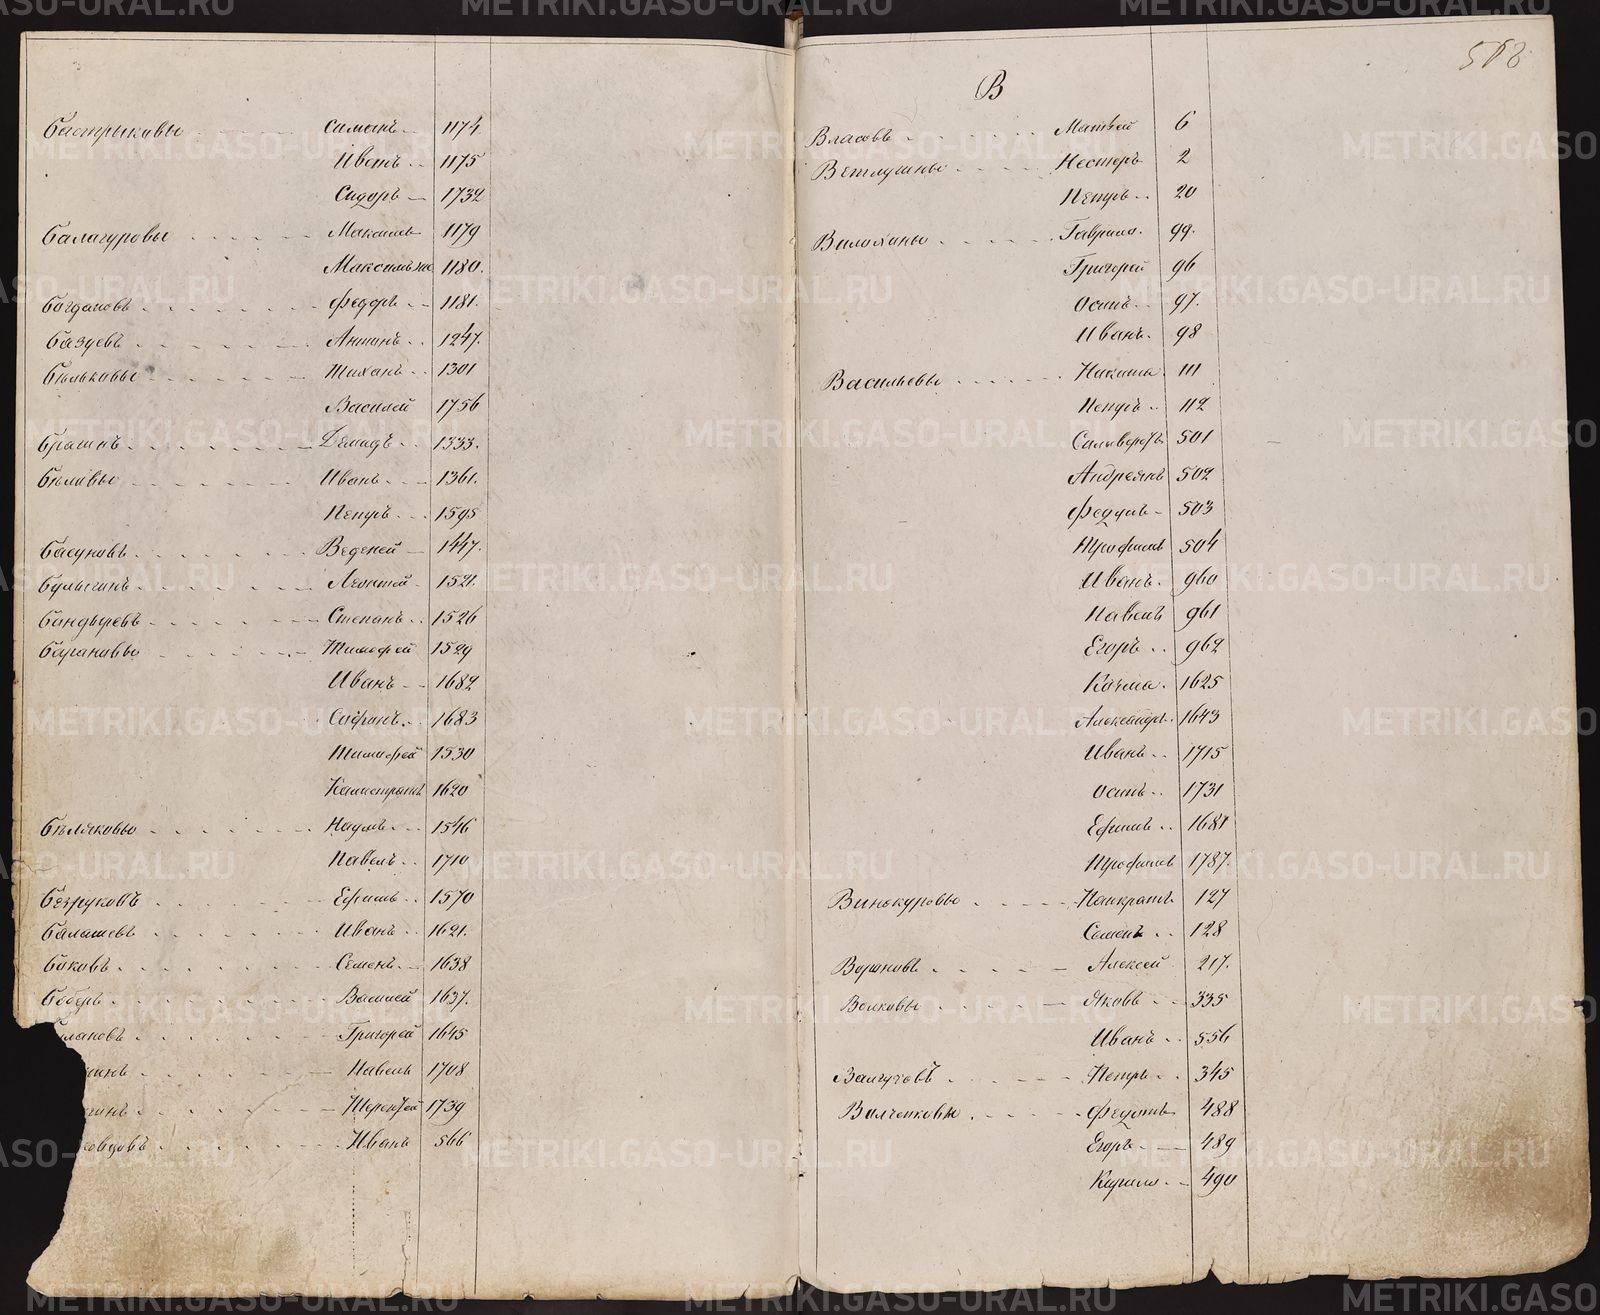 Бастрыковы Симонъ 1174
Иванъ 1175
Сидоръ 1732
Балагуровы Максимъ 1179
Максимъ же 1180.
Богдановъ Федоръ 1181.
Базуевъ Антипъ 1247.
Бѣльковы Тихонъ 1301
Василей 1756
Брагинъ Демидъ 1333.
Бѣловы Иванъ 1361.
Петръ 1595
Басуновъ Веденей 1447.
Булыгинъ Леонтей 1521.
Бандыревъ Степанъ 1526
Барановы Тимофей 1529
Иванъ 1682
Софонъ 1683
Тимофей 1530
Калистратъ 1620
Бѣляковы Наумъ 1546
Павелъ 1710
Безруковъ Ефимъ 1570
Балашевъ Иванъ 1621.
Боковъ Семенъ 1638
Боберъ Василей 1637.
лановъ Григорей 1645
инъ Павелъ 1708
гинъ Терентей 1739
овцовъ Иванъ 566
568
В
Власовъ Матвей 6
Ветлугины Нестеръ 2
Петръ 20
Вилохины Гаврило 99.
Григорей 96
Осипъ 97.
Иванъ 98
Васильевы Никита 111
Петръ 112
Селиверстъ 501
Андреянъ 502
Федулъ 503
Трофимъ 504
Иванъ 960
Павелъ 961
Егоръ 962
Козма 1625
Александръ 1643
Иванъ 1715
Осипъ 1731
Ефимъ 1681
Трофимъ 1787.
Винокуровы Панкратъ 127
Семенъ 128
Вороновъ Алексей 217.
Волковы Яковъ 335
Иванъ 556
Валгусовъ Петръ 345
Вилченковы Федотъ 488
Егоръ 489
Кирило 490
METRIKI.GASO-URAL.RU